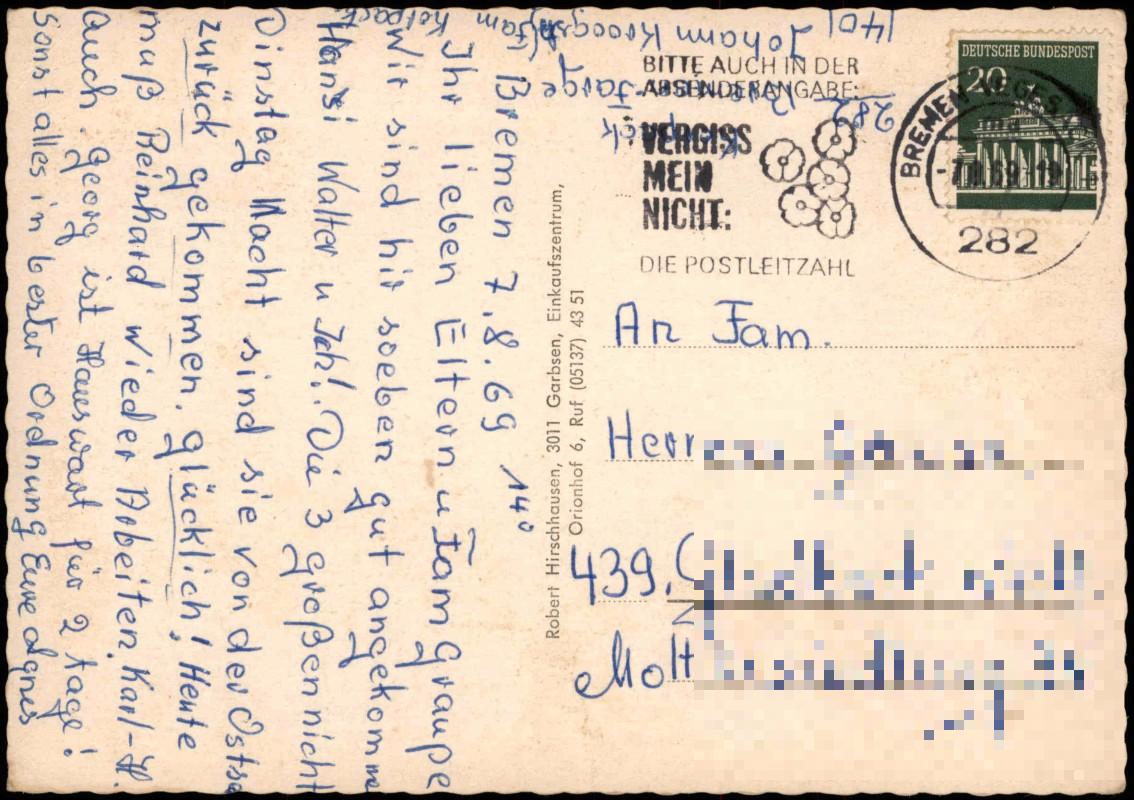 Bremen 7.8.69 14°
Ihr lieben Eltern u Fam Graupe
Wir sind hir soeben gut angekomme
Hansi Walter u Ich! Die 3 großen nicht
Dinstag Nacht sind sie von der Ostse
zurück gekommen. glücklich! Heute
muß Reinhard wieder Arbeiten. Karl-H.
auch. georg ist Hauswart für 2 tage!
Sonst alles in bester Ordnung Eure Agnes
Robert Hirschhausen, 3011 Garbsen, Einkaufszentrum,
Orionhof 6, Ruf (05137) 43 51
Fam
Johann
282
BITTE AUCH IN DER
ABSENDERANGABE:
VERGISS
MEIN
NICHT:
DIE POSTLEITZAHL
DEUTSCHE BUNDESPOST
20
BREMEN-VEGES
69-19
282
An Fam.
Herr
439,
Molt